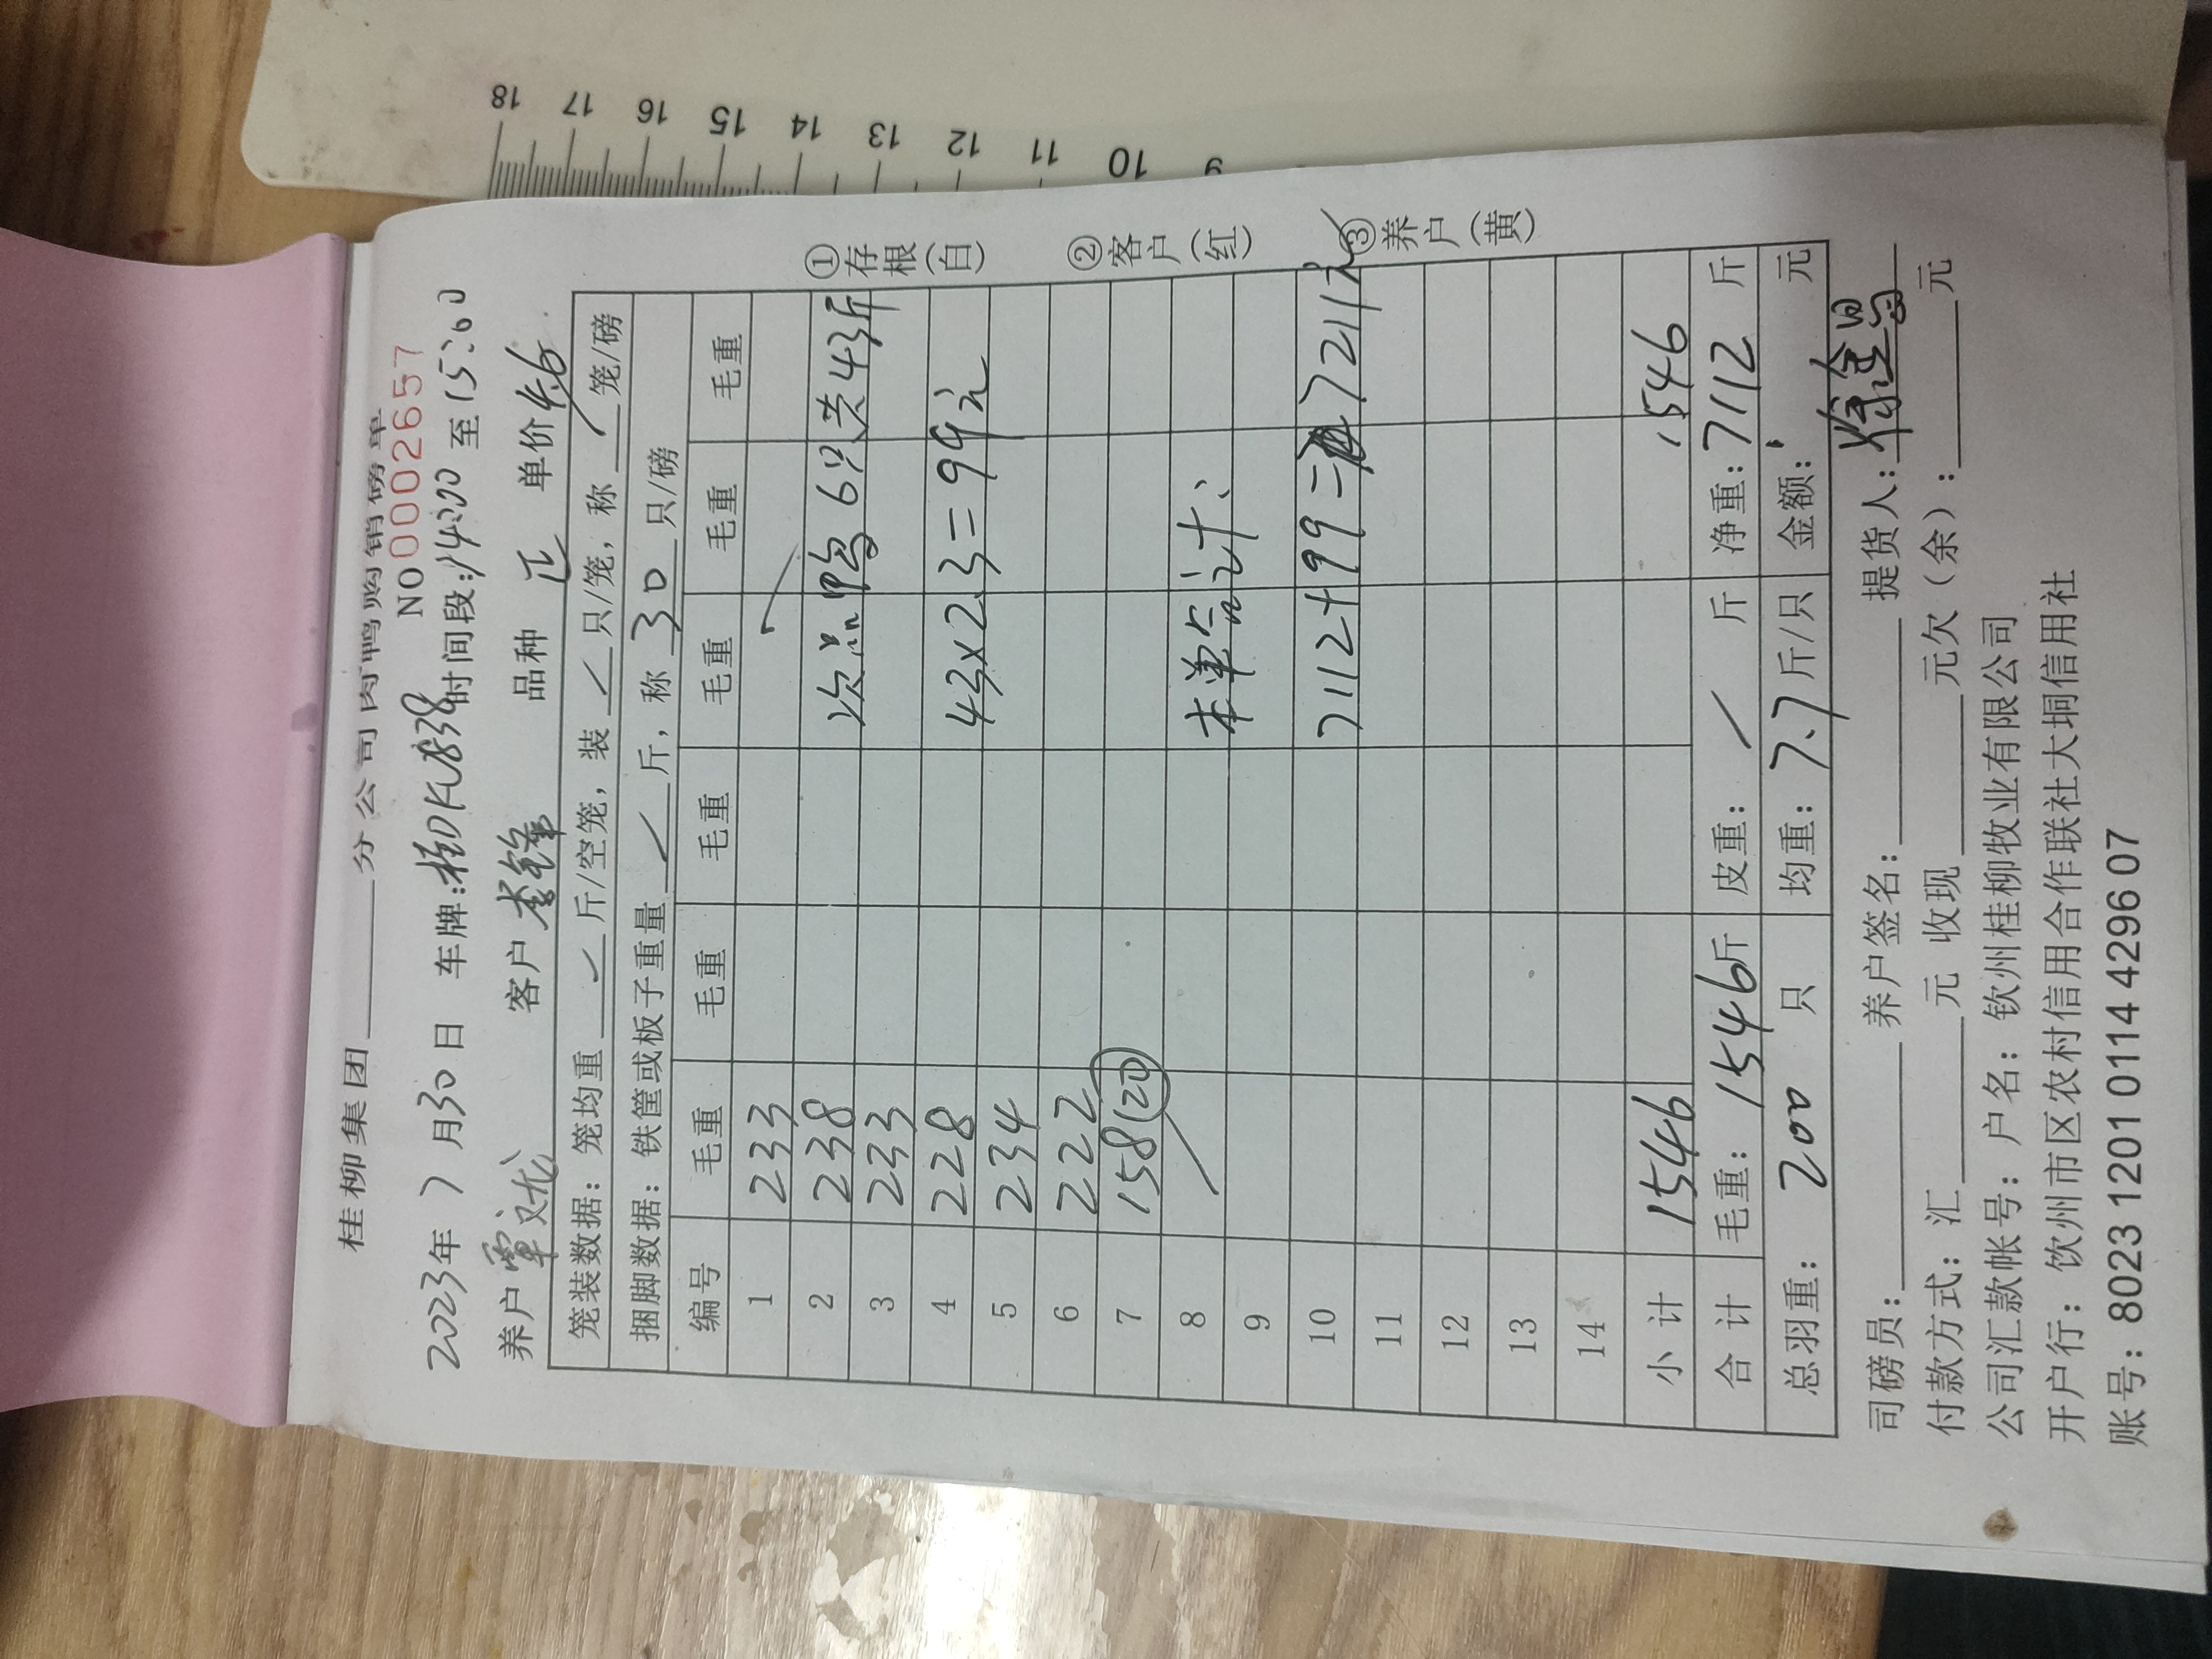 桂柳集团 分公司肉鸭购销磅单
NO 00002657
2023年7月30日 车牌:桂DFU838 时间段:14:00 至 15:00
养户 覃龙 客户 李锋 品种 正 单价 4.6
笼装数据：笼均重 斤/空笼，装 只/笼，称 笼/磅
捆脚数据：铁筐或板子重量 斤，称 30 只/磅
编号 毛重 毛重 毛重 毛重 毛重 毛重
1 233
2 238 次品鸭6只共43斤
3 233
4 228 43×2.3=99元
5 234
6 222
7 158(20)
8 本单合计:
9
10 7112+99= 7211元
11
12
13
14
小计 1546 1546
合计 毛重：1546斤 皮重： 斤 净重：7112 斤
总羽重： 200 只 均重：7.7斤/只 金额： 元
①存根(白) ②客户(红) ③养户(黄)
司磅员： 养户签名： 提货人：
付款方式：汇 元 收现 元欠（余）： 元
公司汇款帐号：户名：钦州桂柳牧业有限公司
开户行：饮州市区农村信用合作联社大垌信用社
账号：8023 1201 0114 4296 07
18 17 16 15 14 13 12 11 10 9